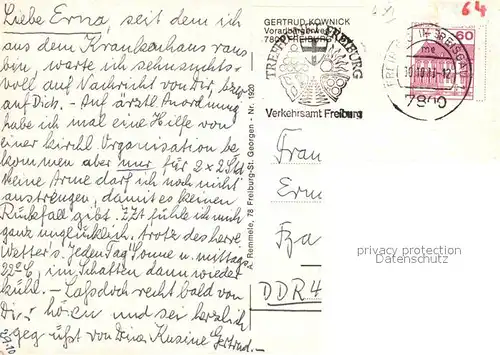 Liebe Erna, seit dem ich
aus dem Krankenhaus raus
bin, warte ich sehnsuchts-
voll auf Nachricht von Dir, bzw.
auf Dich. - Auf ärztl. Anordnung
habe ich mal eine Hilfe von
einer kirchl. Organisation be
kommen aber nur für 2 x 2 Std.
Meine Arme darf ich noch nicht
anstrengen, damit es keinen
Rückfall gibt. Zzt fühle ich mich
ganz unglücklich. trotz des herr
Wetter's. Jeden Tag Sonne u. mittags
22°, im Schatten dann wieder
kühl. - Laß doch recht bald von
Dir hören und sei herzlich
gegrüßt von Dina Kusine Gertrud. -
27.10
A. Remmele, 78 Freiburg-St. Georgen - Nr. 1920
GERTRUD KOWNICK
7800 FREIBURG
TREFFPUNKT FREIBURG
Verkehrsamt Freiburg
FREIBURG IM BREISGAU
me
-12
7800
60
64
Frau
Erm
Fza
DDR 4
privacy protection
Datenschutz